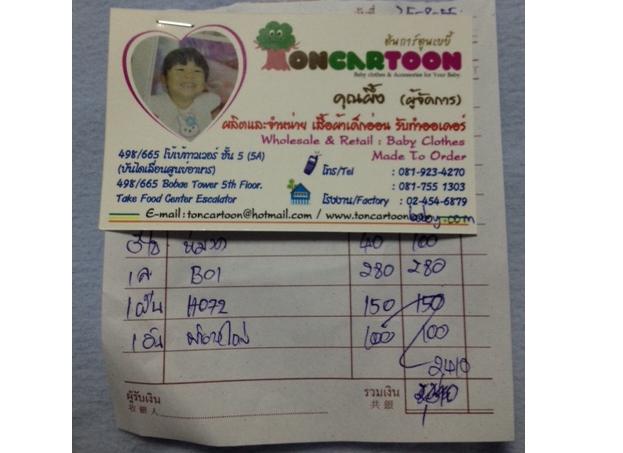 วันที่ 25-8-55
TONCARTOON
ต้นการ์ตูนเบบี้
Baby clothes & Accessories for Your Baby
คุณผึ้ง (ผู้จัดการ)
ผลิตและจำหน่าย เสื้อผ้าเด็กอ่อน รับทำออเดอร์
Wholesale & Retail : Baby Clothes
Made To Order
498/665 โบ๊เบ๊ทาวเวอร์ ชั้น 5 (5A)
(บันไดเลื่อนศูนย์อาหาร)
498/665 Bobae Tower 5th Floor.
Take Food Center Escalator
โทร/Tel : 081-923-4270
: 081-755 1303
โรงงาน/Factory : 02-454-6879
E-mail:toncartoon@hotmail.com / www.toncartoonbaby.com
หมวก 40
B01 280 280
1 ผืน H072 150 150
1 อัน 100 100
2410
ผู้รับเงิน
收銀人
รวมเงิน
共銀